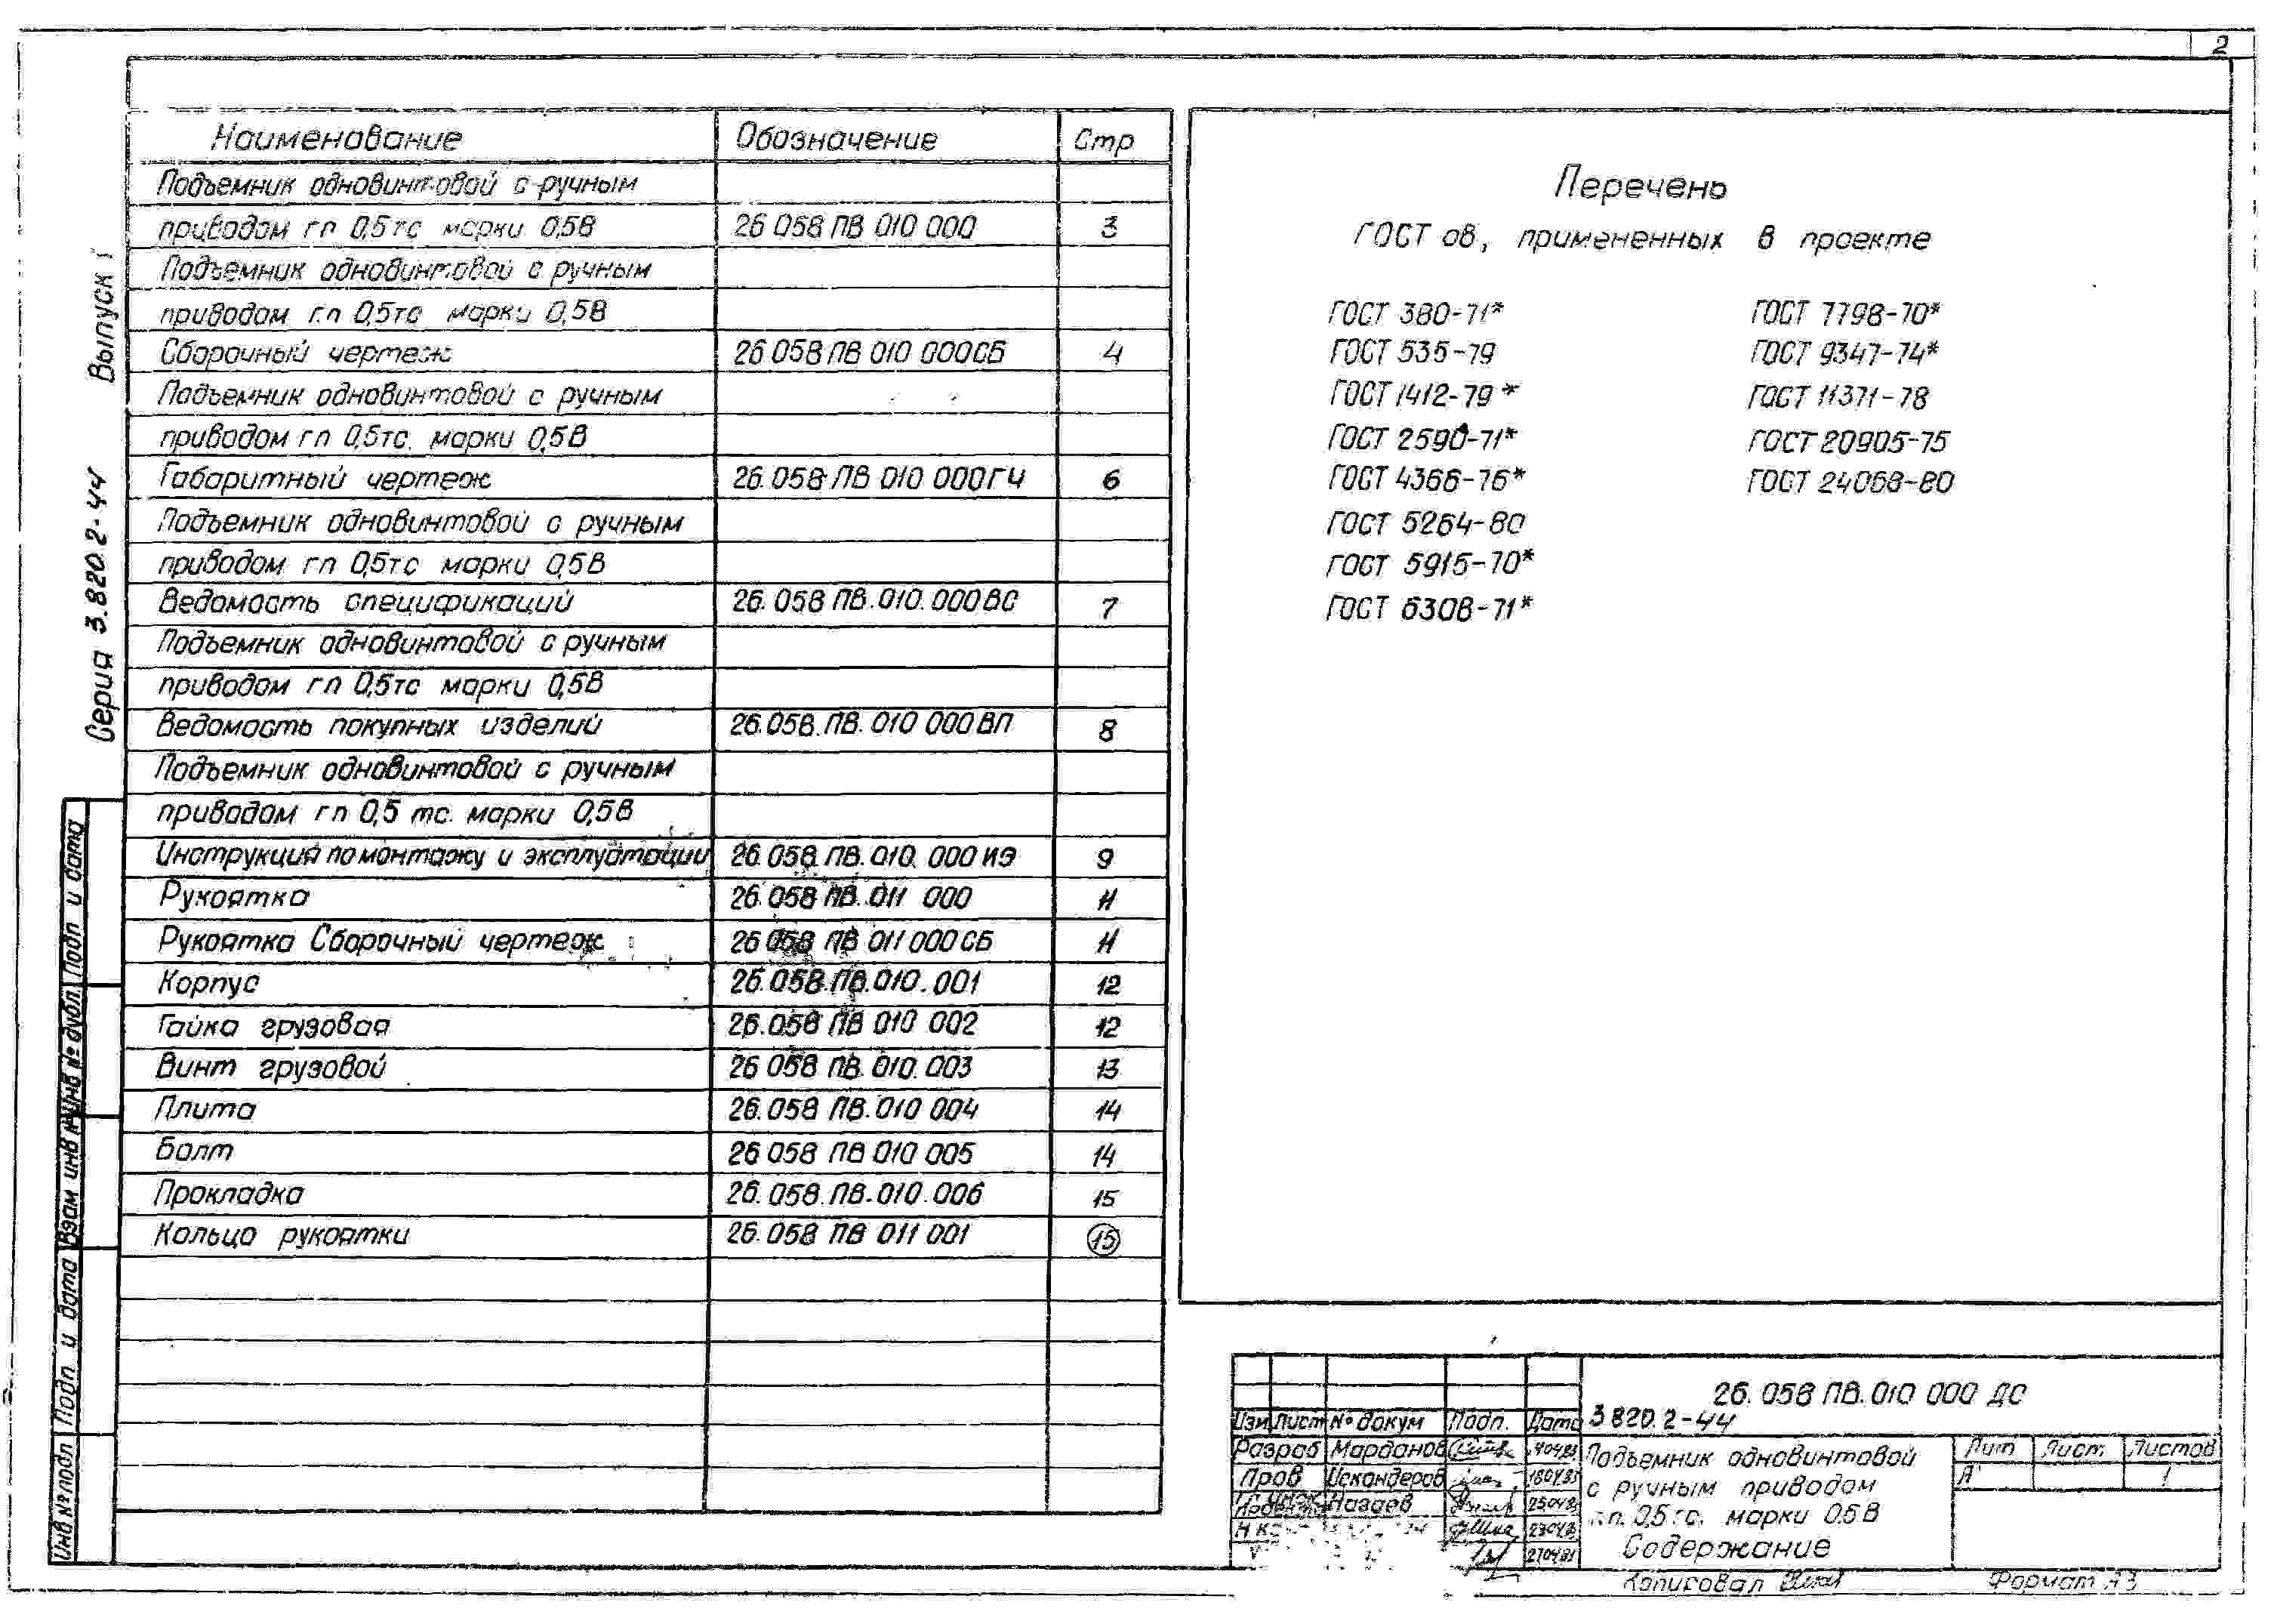 2
Наименование Обозначение Стр
Подъемник одновинтовой с ручным
приводом гп 0,5тс марки 0,5В 26 058 ПВ 010 000 3
Подъемник одновинтовой с ручным
приводом г.п 0,5тс марки 0,5В
Сборочный чертеж 26.058 ПВ 010 000СБ 4
Подъемник одновинтовой с ручным
приводом гп 0,5тс. марки 0,5В
Габаритный чертеж 26.058 ПВ 010 000ГЧ 6
Подъемник одновинтовой с ручным
приводом гп 0,5тс марки 0,5В
Ведомость спецификаций 26. 058 ПВ.010.000ВС 7
Подъемник одновинтовой с ручным
приводом гп 0,5тс марки 0,5В
Ведомость покупных изделий 26.058.ПВ. 010 000ВП 8
Подъемник одновинтовой с ручным
приводом гп 0,5 тс. марки 0,5В
Инструкция по монтажу и эксплуатации 26.058.ПВ.010.000ИЭ 9
Рукоятка 26.058 ПВ.011 000 11
Рукоятка Сборочный чертеж 26 058 ПВ 011 000СБ 11
Корпус 26.058.ПВ.010.001 12
Гайка грузовая 26.058 ПВ 010 002 12
Винт грузовой 26 058 ПВ.010.003 13
Плита 26.058 ПВ.010 004 14
Болт 26 058 ПВ 010 005 14
Прокладка 26.058.ПВ.010.006 15
Кольцо рукоятки 26.058 ПВ 011 001 15
Перечень
ГОСТ ов, примененных в проекте
ГОСТ 380-71* ГОСТ 7798-70*
ГОСТ 535-79 ГОСТ 9347-74*
ГОСТ 1412-79* ГОСТ 11371-78
ГОСТ 2590-71* ГОСТ 20905-75
ГОСТ 4366-76* ГОСТ 24068-80
ГОСТ 5264-80
ГОСТ 5915-70*
ГОСТ 6308-71*
Серия 3.820.2-44 Выпуск 1
Инв № подл Подп и дата Взам инв № Инв № дубл. Подп и дата
26. 058 ПВ.010 000 ДС
Изм Лист № докум Подп. Дата 3 820.2-44
Разраб Марданов
Пров Искандеров
Назаев
Подъемник одновинтовой
с ручным приводом
г.п. 0,5 тс. марки 0.5 В
Содержание
Лит Лист Листов
А 1
Копировал Формат А3